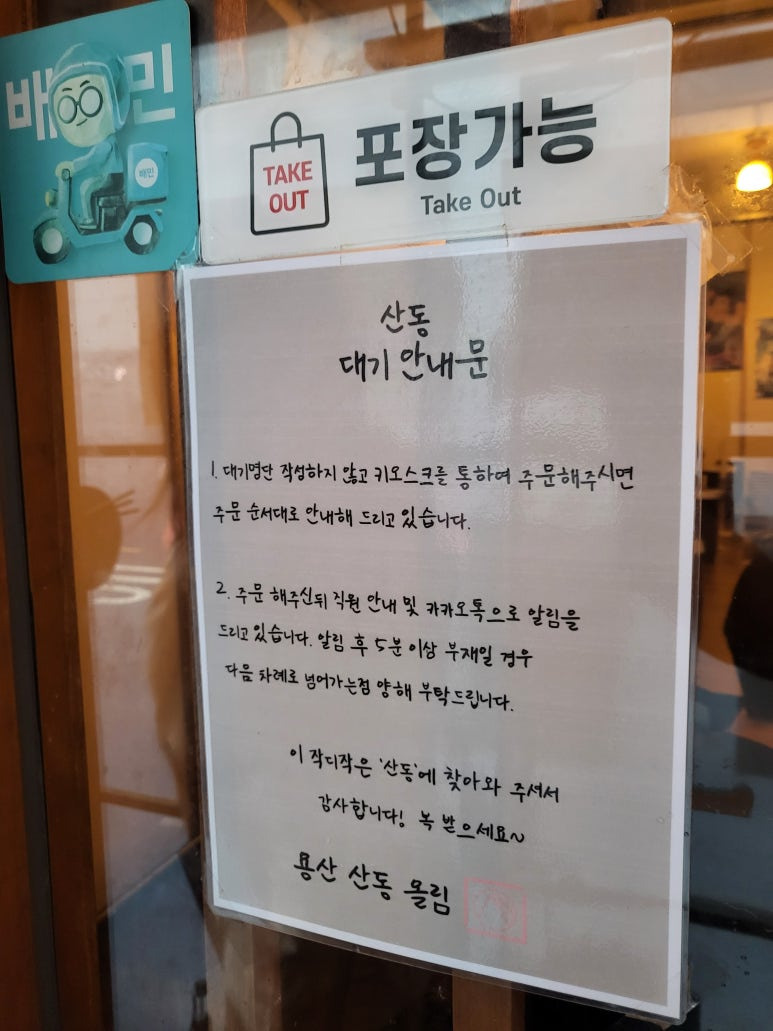 배민
배민
TAKE
OUT
포장가능
Take Out
산동
대기 안내문
1. 대기명단 작성하지 않고 키오스크를 통하여 주문해주시면
주문 순서대로 안내해 드리고 있습니다.
2. 주문 해주신뒤 직원 안내 및 카카오톡으로 알림을
드리고 있습니다. 알림 후 5분 이상 부재일 경우
다음 차례로 넘어가는점 양해 부탁드립니다.
이 작디작은 '산동'에 찾아와 주셔서
감사합니다! 복 받으세요~
용산 산동 올림